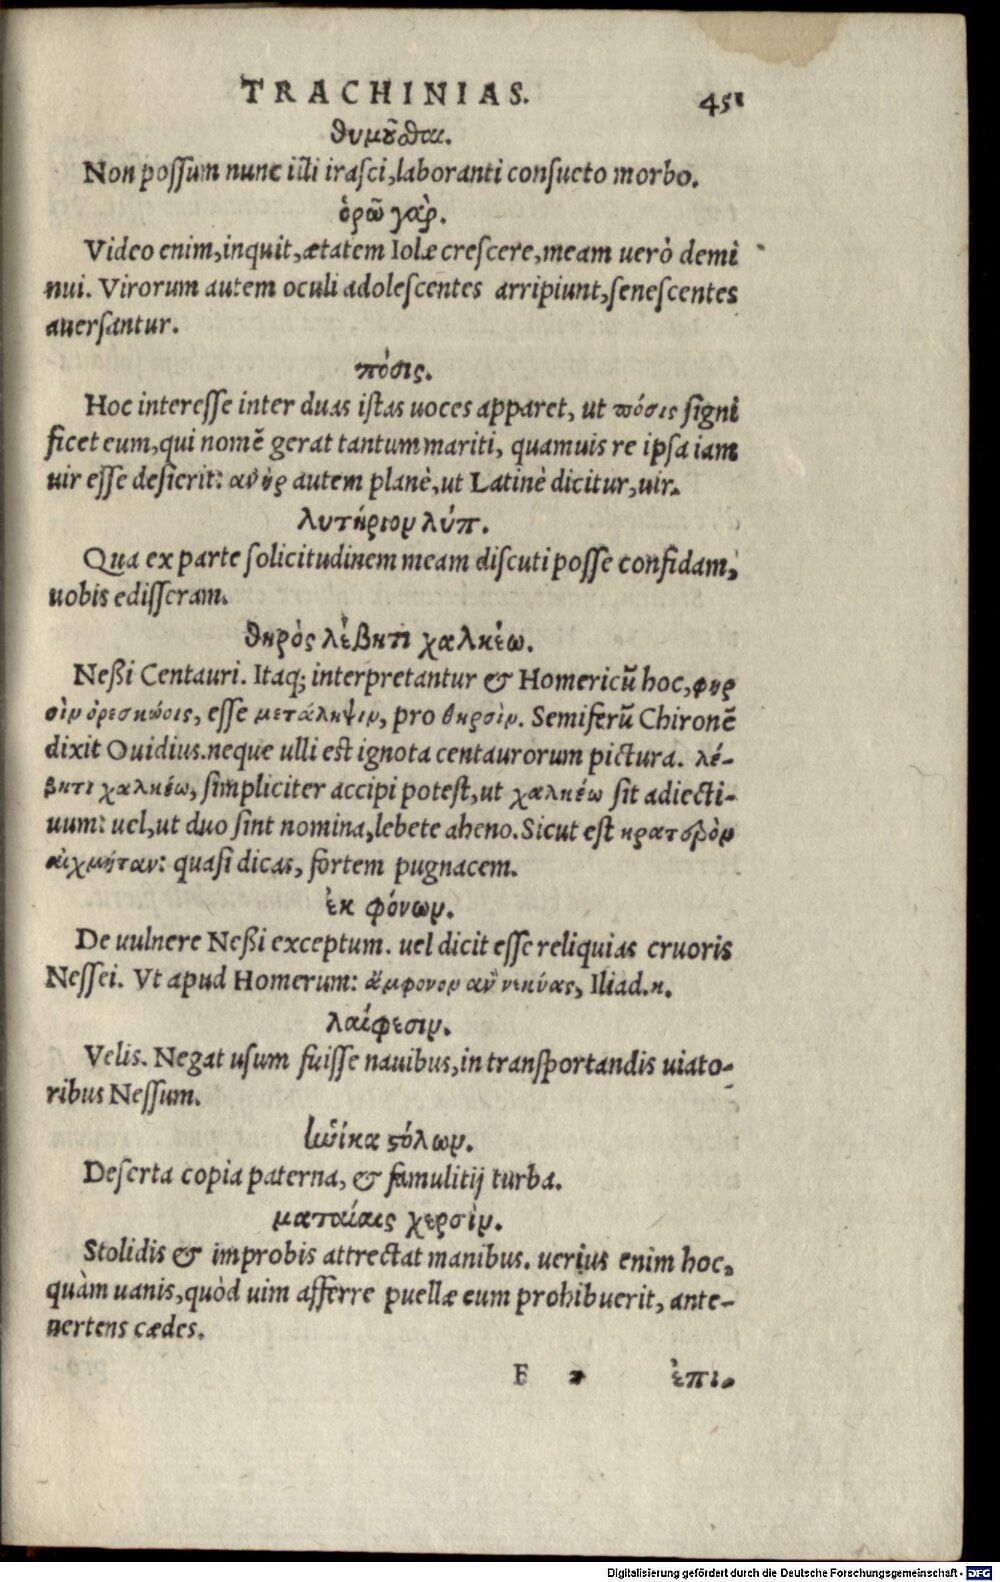 TRACHINIAS. 451
θυμοῦσθαι.
Non possum nunc illi irasci, laboranti consueto morbo.
ὁρῶ γὰρ.
Video enim, inquit, ætatem Iolæ crescere, meam uerò demi
nui. Virorum autem oculi adolescentes arripiunt, senescentes
auersantur.
πόσις.
Hoc interesse inter duas istas uoces apparet, ut πόσις signi
ficet eum, qui nomẽ gerat tantum mariti, quamuis re ipsa iam
uir esse desierit: ανὴρ autem planè, ut Latinè dicitur, uir.
λυτήριον λύπ.
Qua ex parte solicitudinem meam discuti posse confidam,
uobis edisseram.
θηρὸς λέβητι χαλκέω.
Neßi Centauri. Itaq; interpretantur & Homericũ hoc, φηρ
σὶν ὀρεσκώοις, esse μετάληψιν, pro θηρσὶν. Semiferũ Chironẽ
dixit Ouidius. neque ulli est ignota centaurorum pictura. λέ-
βητι χαλκέω, simpliciter accipi potest, ut χαλκέω sit adiecti-
uum: uel, ut duo sint nomina, lebete aheno. Sicut est κρατερὸν
αἰχμήταν: quasi dicas, fortem pugnacem.
ἐκ φόνων.
De uulnere Neßi exceptum. uel dicit esse reliquias cruoris
Nessei. Vt apud Homerum: ἄμφονον ἂν νεκύας, Iliad. κ.
λαίφεσιν.
Velis. Negat usum fuisse nauibus, in transportandis uiato-
ribus Nessum.
ἡνίκα ϛόλων.
Deserta copia paterna, & famulitij turba.
ματαίαις χερσὶν.
Stolidis & improbis attrectat manibus. uerius enim hoc,
quàm uanis, quòd uim afferre puellæ eum prohibuerit, ante-
uertens cædes.
F 2 ἐπι.
Digitalisierung gefördert durch die Deutsche Forschungsgemeinschaft - DFG